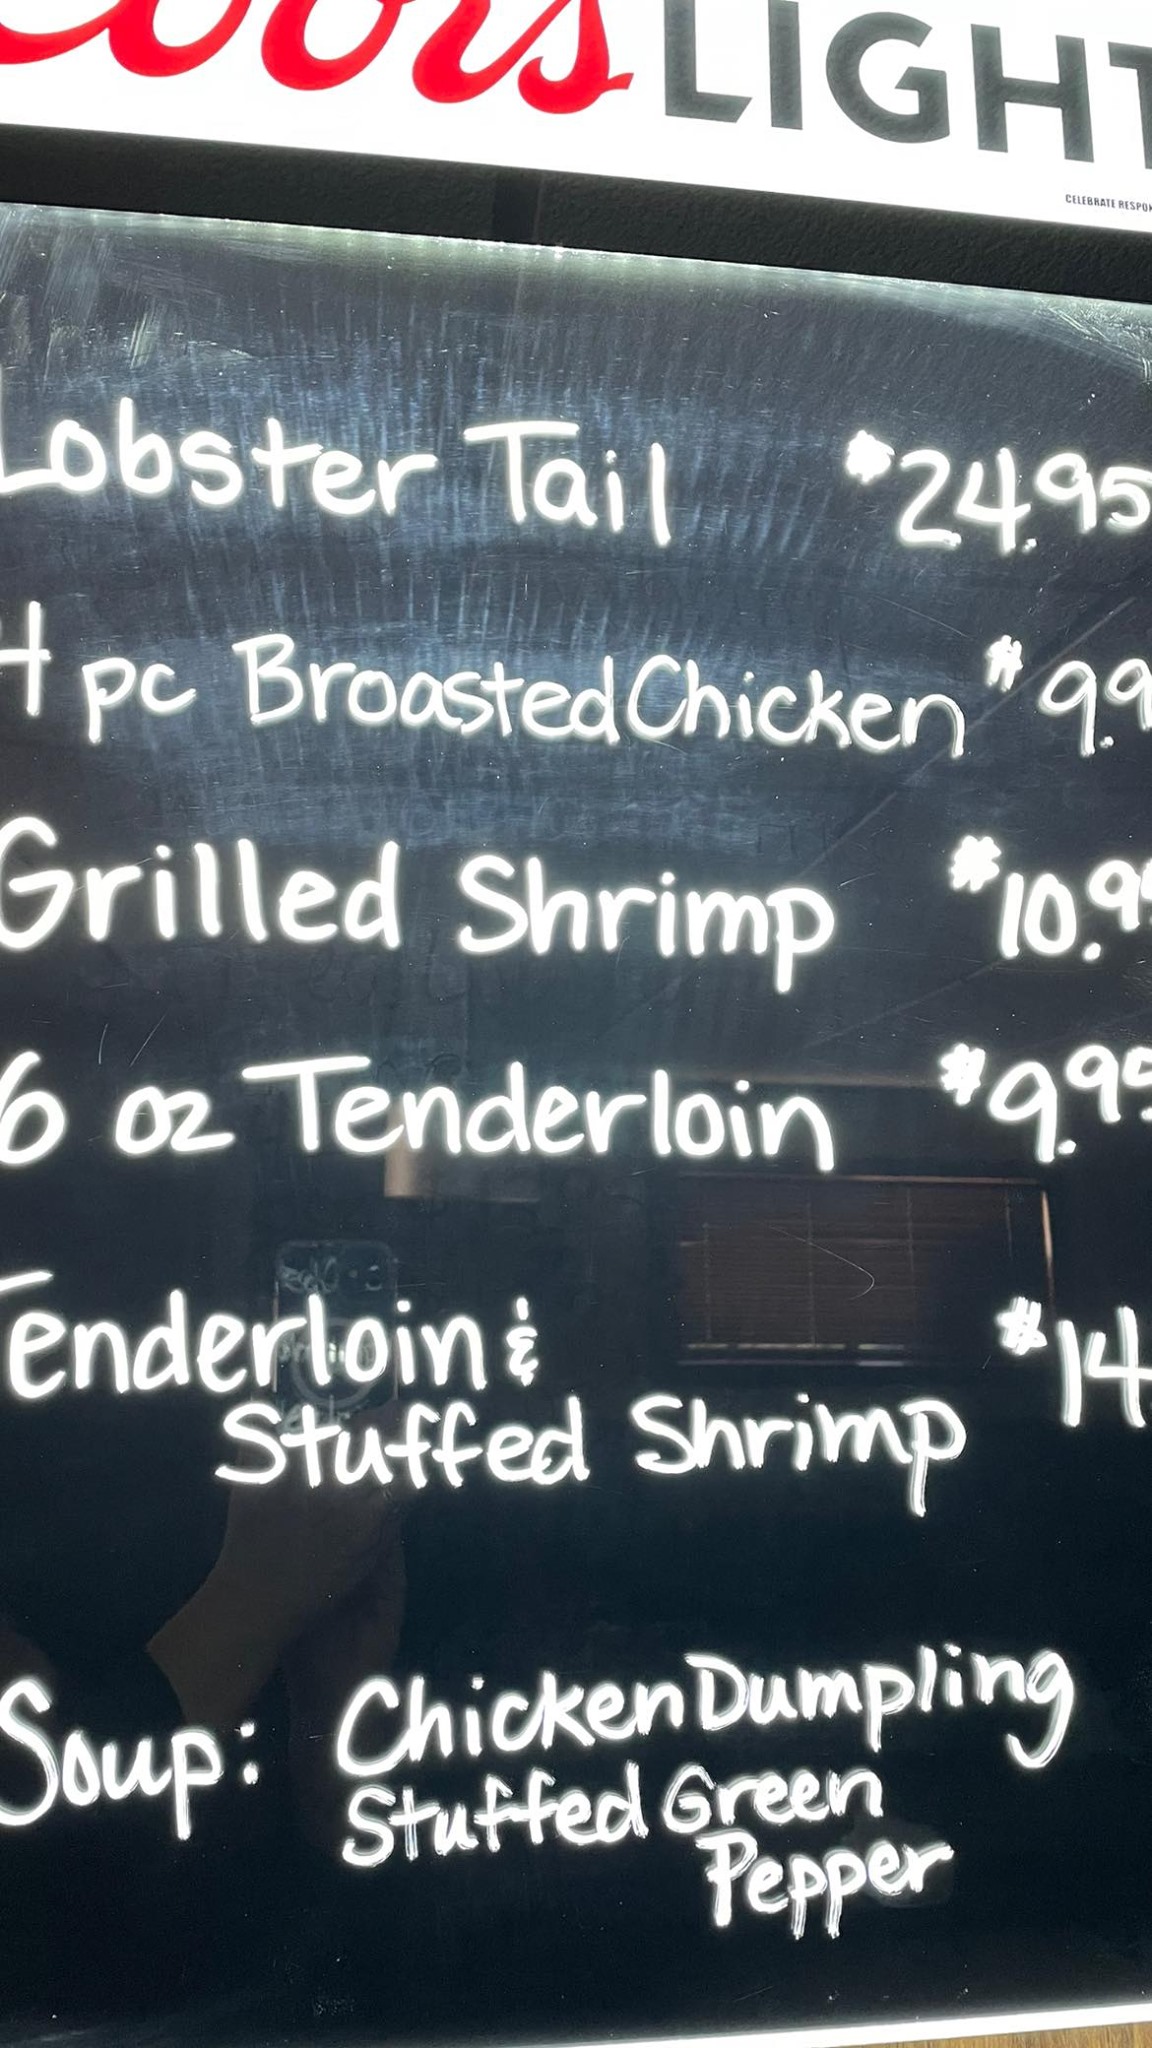 Coors LIGHT
CELEBRATE RESPON
Lobster Tail $24.95
4 pc Broasted Chicken $9.9
Grilled Shrimp $10.95
6 oz Tenderloin $9.95
Tenderloin &
Stuffed Shrimp $14.
Soup: Chicken Dumpling
Stuffed Green
Pepper